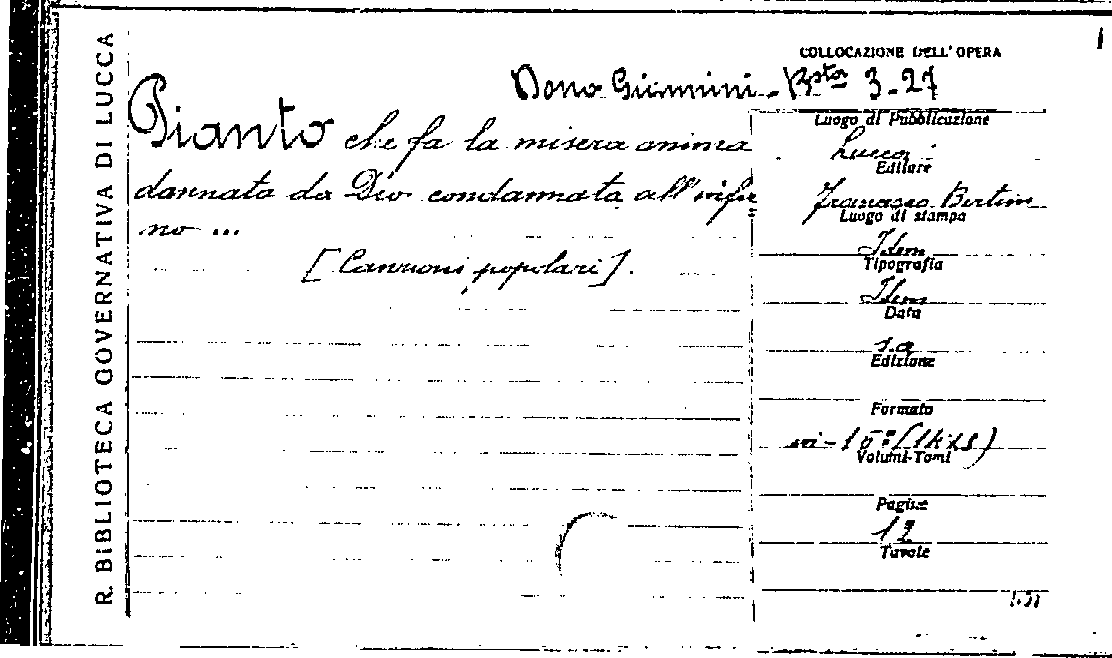 R. BIBLIOTECA GOVERNATIVA DI LUCCA
COLLOCAZIONE DELL'OPERA
Dono Giannini - Bsta 3-27
Pianto che fa la misera anima
dannata da Dio condannata all'infer
no ...
[Canzoni popolari].
Luogo di Pubblicazione
Lucca
Editore
Francesco Bertini
Luogo di stampa
Idem
Tipografia
Idem
Data
s.a
Edizione
Formato
in-16º
Volumi-Tomi
Pagine
12
Tavole